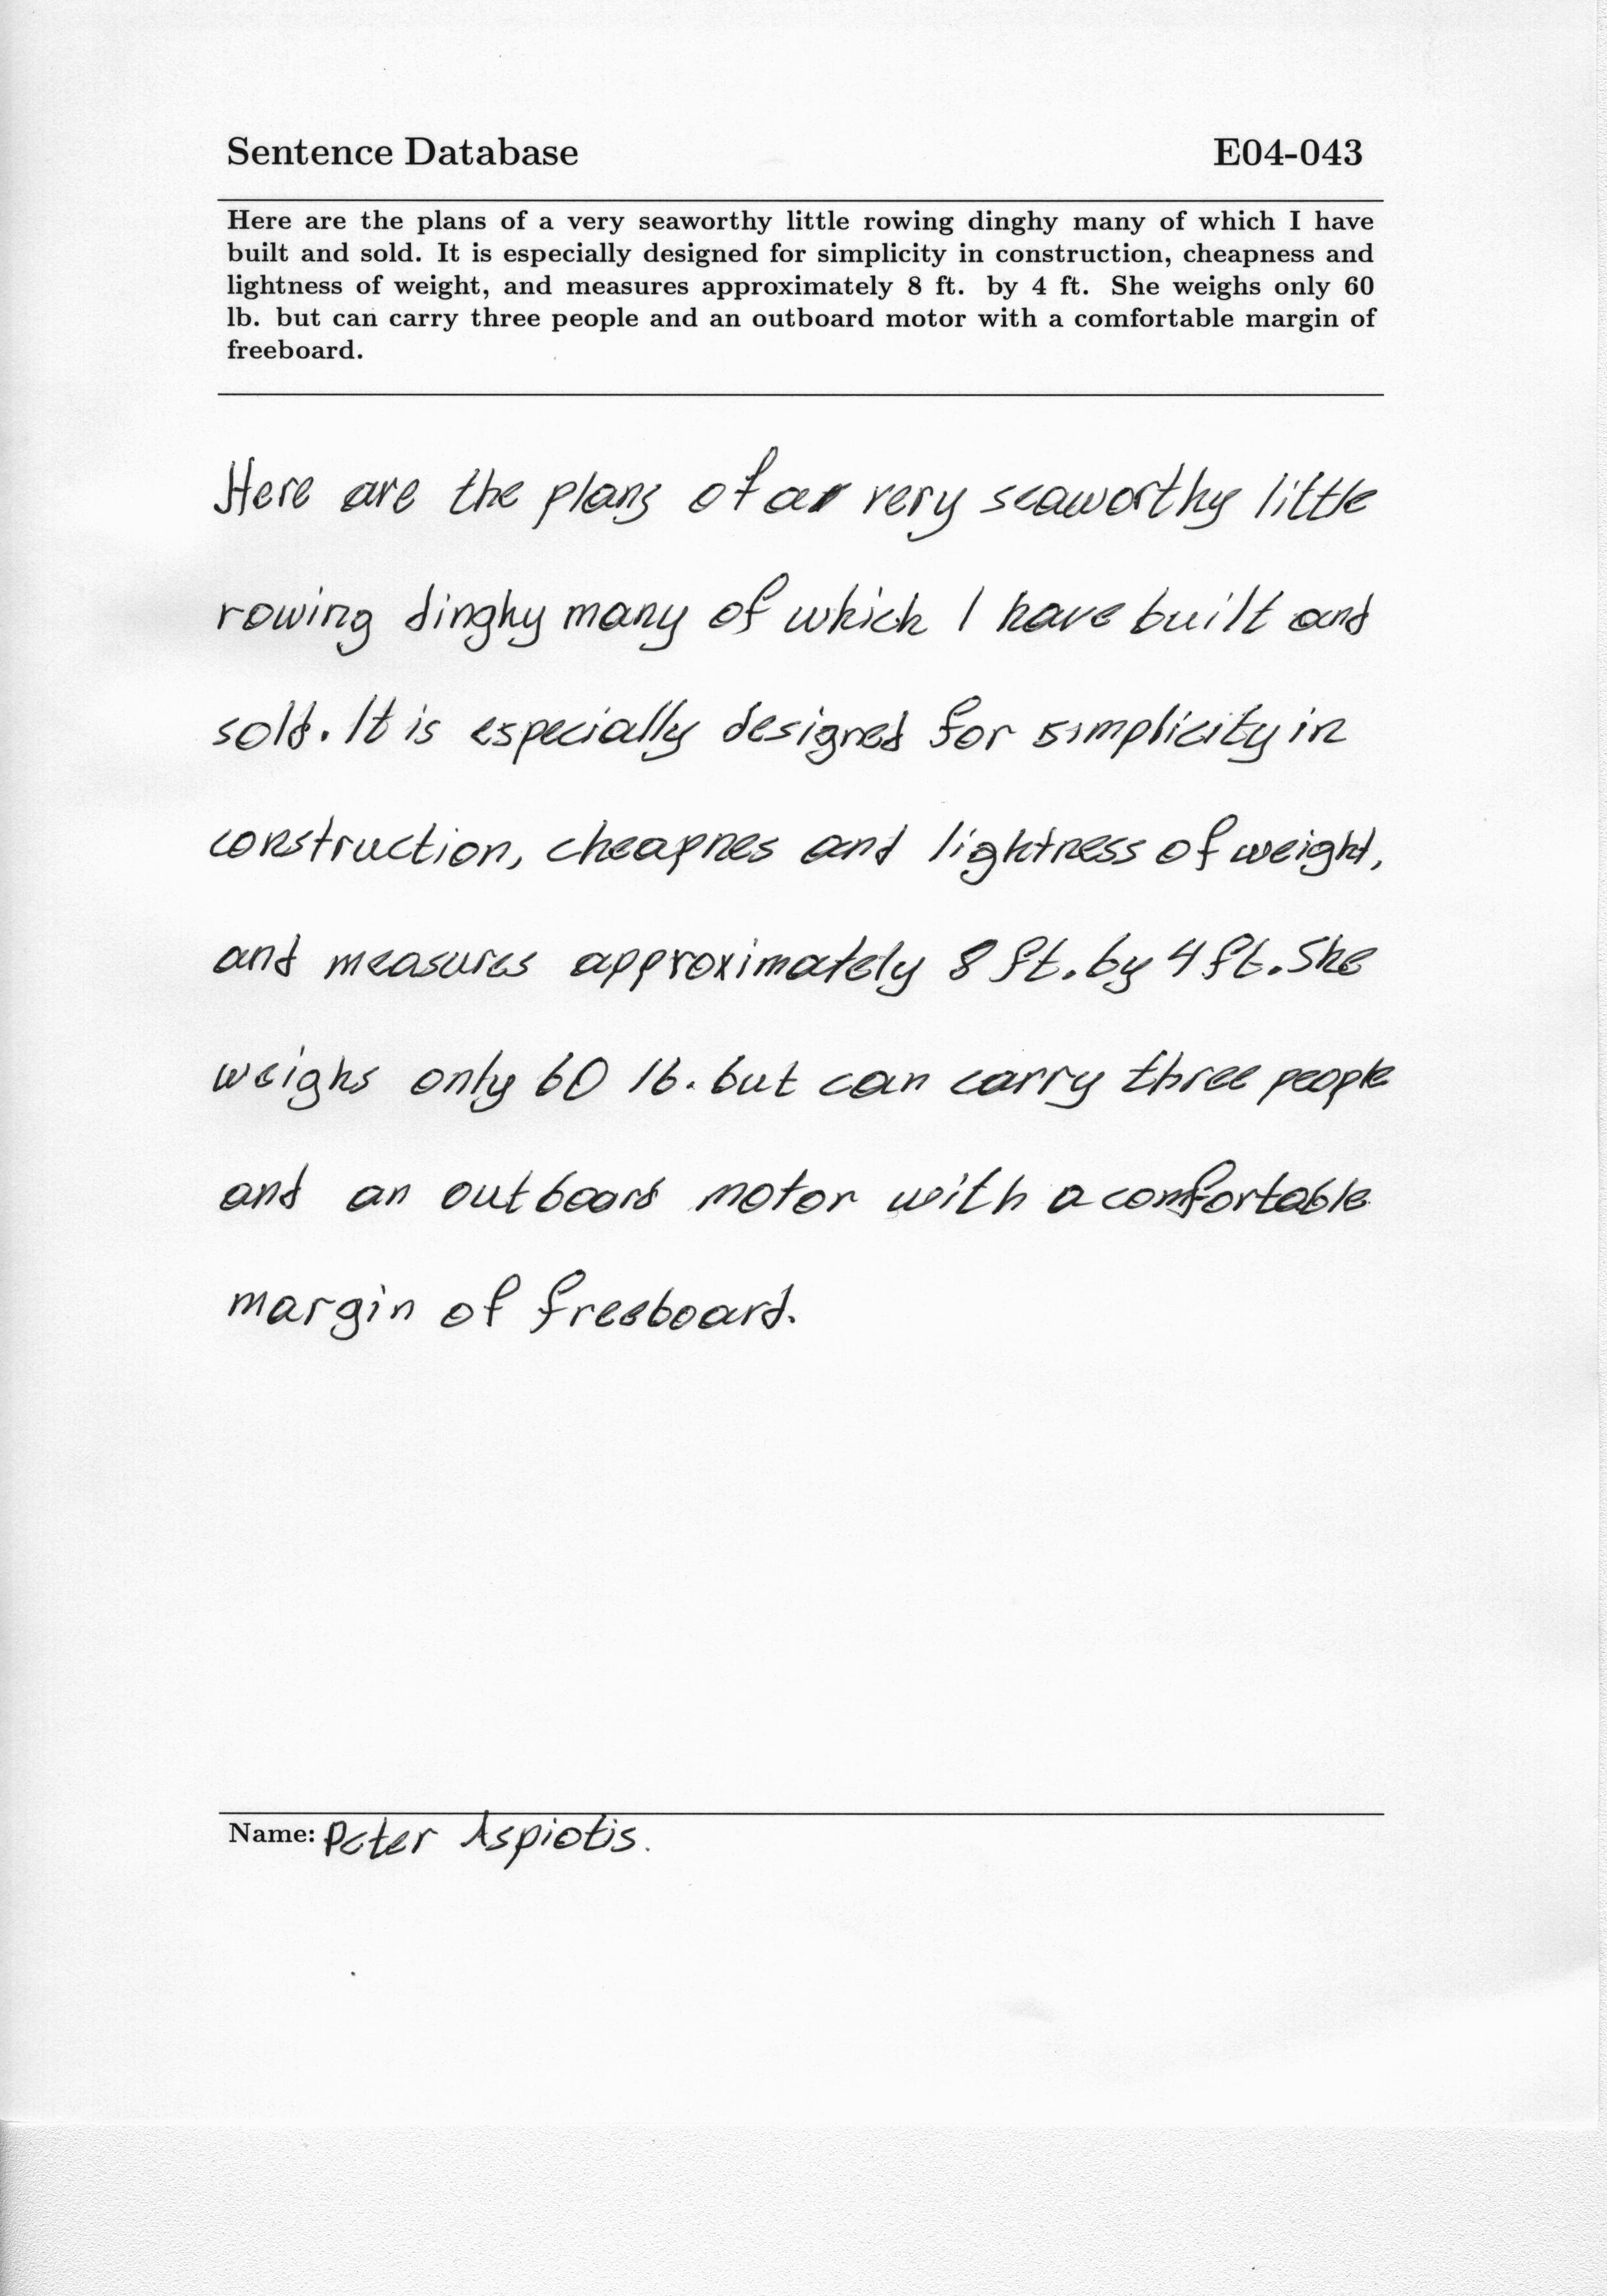 Sentence Database E04-043
Here are the plans of a very seaworthy little rowing dinghy many of which I have
built and sold. It is especially designed for simplicity in construction, cheapness and
lightness of weight, and measures approximately 8 ft. by 4 ft. She weighs only 60
lb. but can carry three people and an outboard motor with a comfortable margin of
freeboard.
Here are the plans of a very seaworthy little
rowing dinghy many of which I have built and
sold. It is especially designed for simplicity in
construction, cheapnes and lightness of weight,
and measures approximately 8 ft. by 4 ft. She
weighs only 60 lb. but can carry three people
and an outboard motor with a comfortable
margin of freeboard.
Name: Peter Aspiotis.